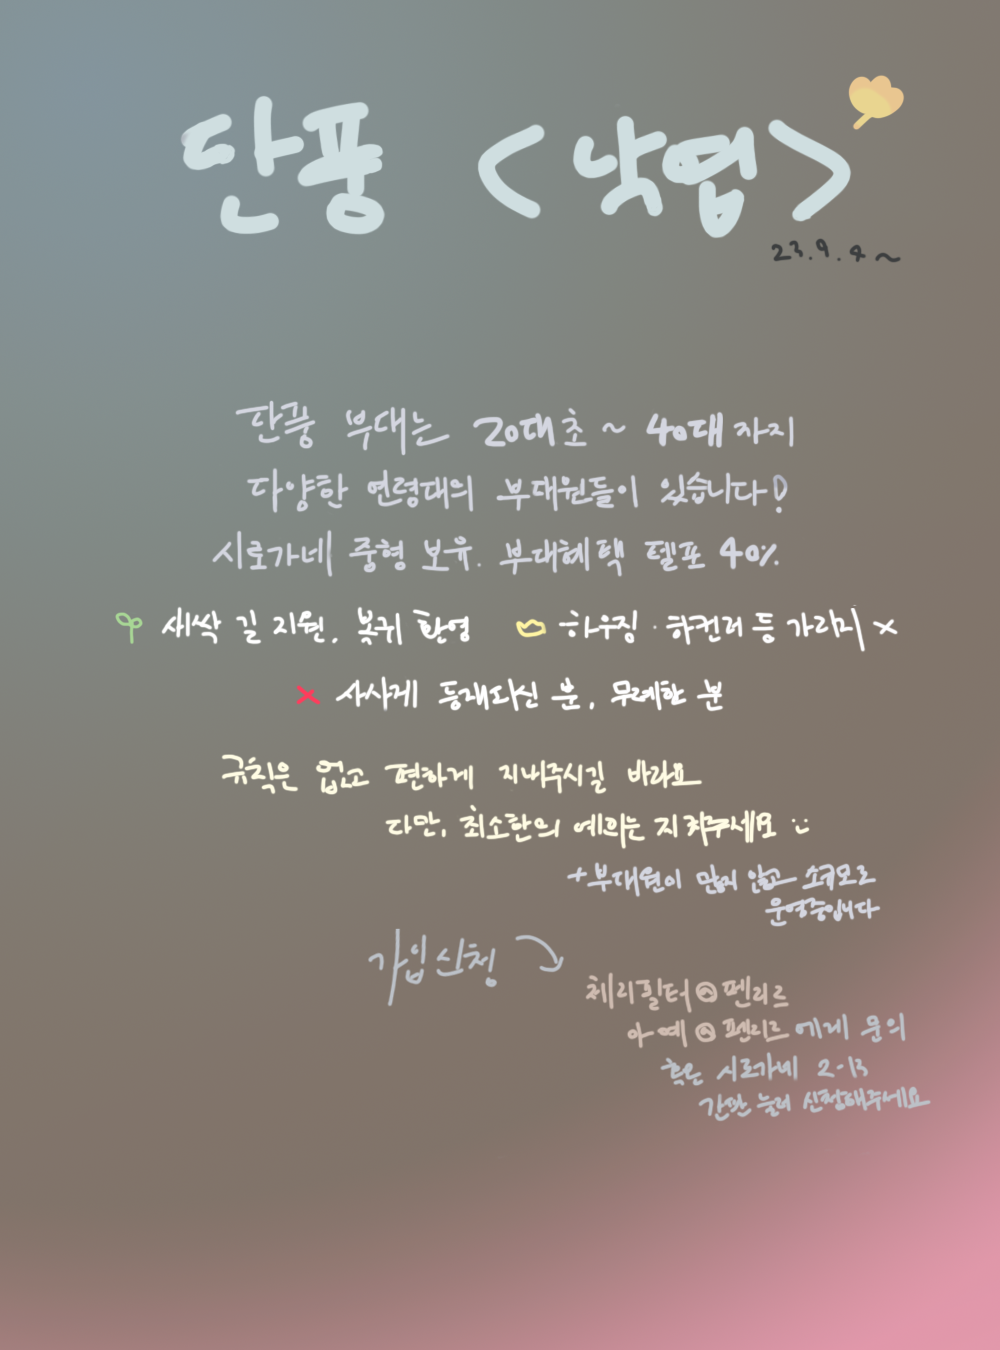 단풍 <낙엽>
23.9.4~
단풍 부대는 20대초 ~ 40대까지
다양한 연령대의 부대원들이 있습니다!
시로가네 중형 보유. 부대혜택 텔포 40%
새싹 길 지원, 복귀 환영 하우징·하컨러 등 가리지 X
사사게 등재되신 분, 무례한 분
규칙은 없고 편하게 지내주시길 바라요
다만, 최소한의 예의는 지켜주세요 :)
+부대원이 많지 않고 소규모로
운영중입니다
가입신청
체리필터@펜리르
아예@펜리르 에게 문의
혹은 시로가네 2-13
간판 눌러 신청해주세요